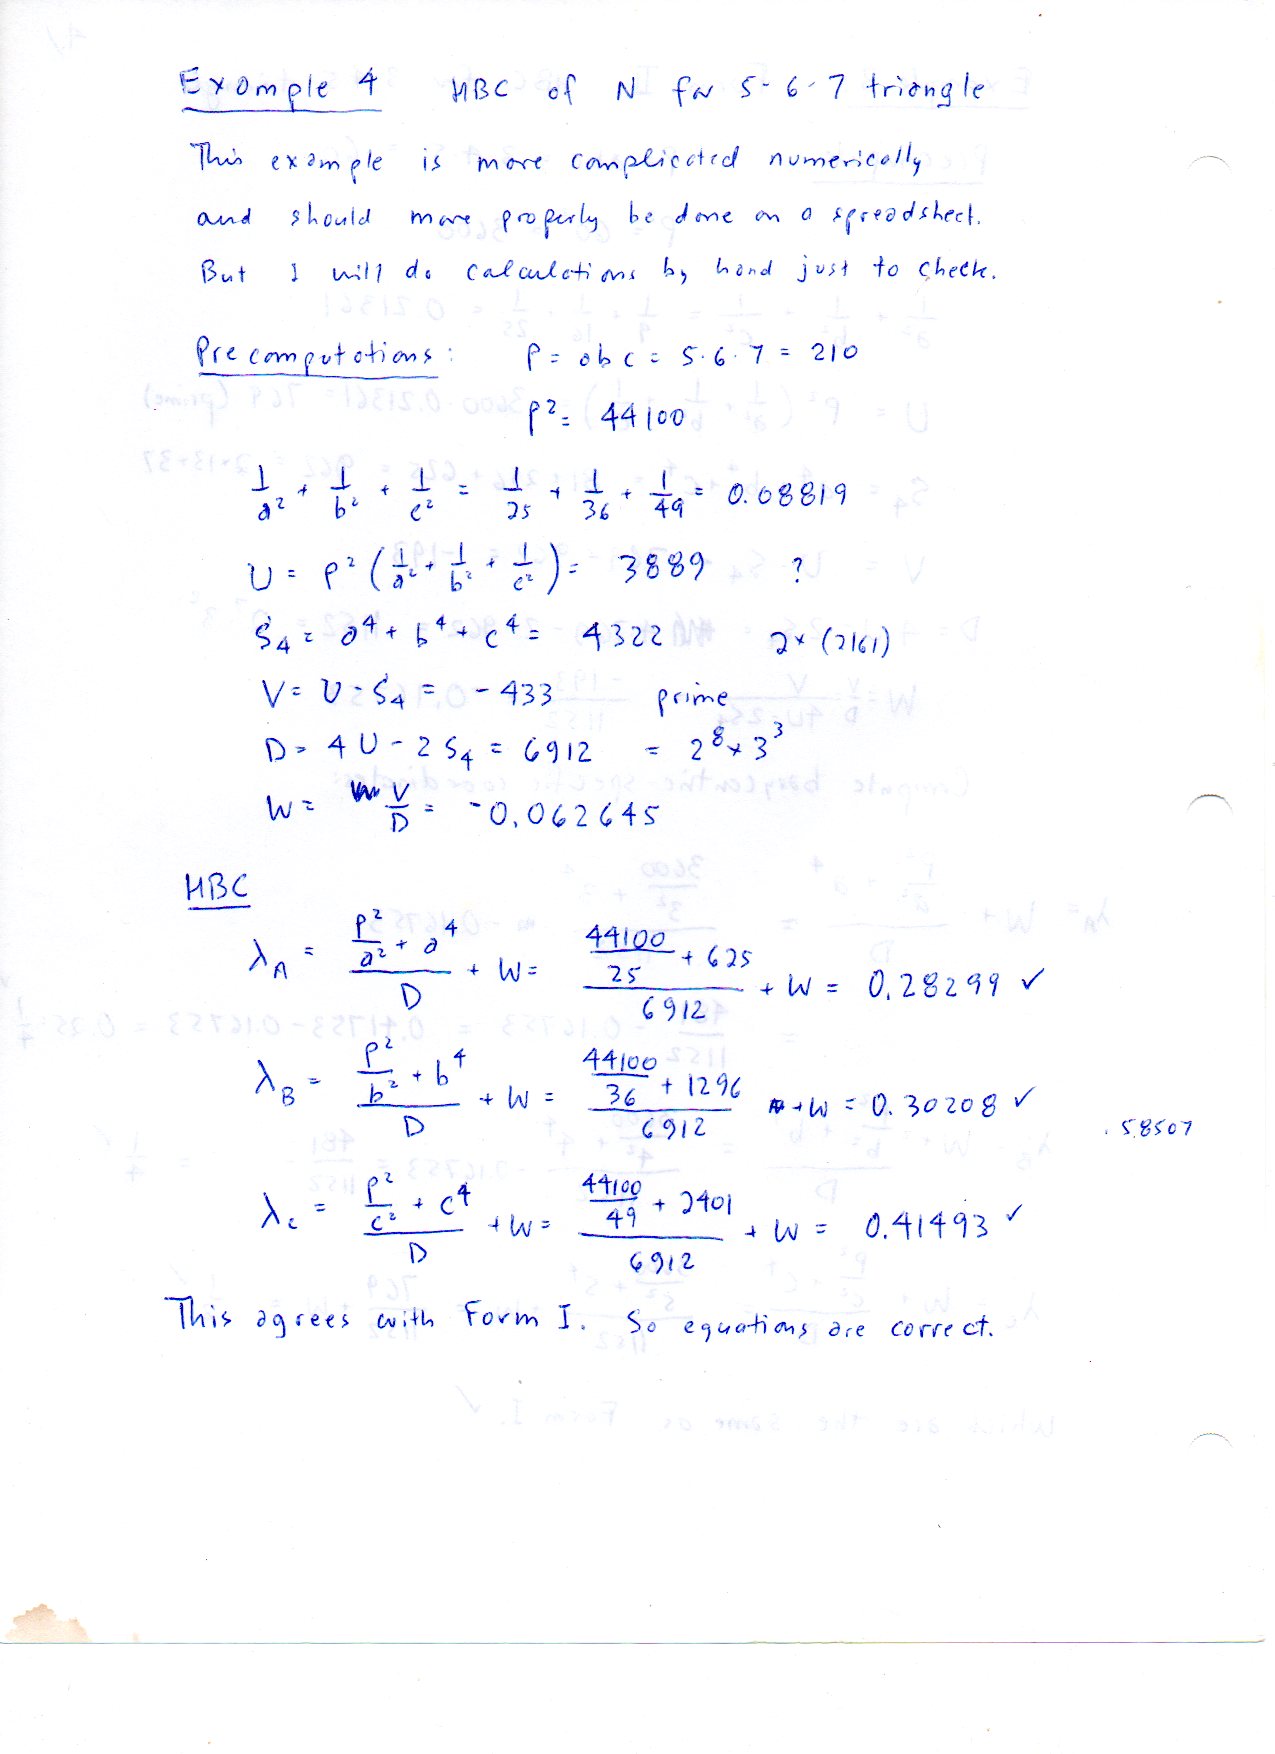 Example 4 HBC of N for 5-6-7 triangle
This example is more complicated numerically
and should more properly be done on a spreadsheet.
But I will do calculations by hand just to check.
Precomputations: P = abc = 5·6·7 = 210
P² = 44100
1/a² + 1/b² + 1/c² = 1/25 + 1/36 + 1/49 = 0.08819
U = P² (1/a² + 1/b² + 1/c²) = 3889 ?
S₄ = a⁴ + b⁴ + c⁴ = 4322 2 × (2161)
V = U - S₄ = -433 prime
D = 4U - 2S₄ = 6912 = 2⁸ × 3³
W = V/D = -0.062645
HBC
λ_A = (P²/a² + a⁴)/D + W = (44100/25 + 625)/6912 + W = 0.28299 ✓
λ_B = (P²/b² + b⁴)/D + W = (44100/36 + 1296)/6912 + W = 0.30208 ✓
.58507
λ_C = (P²/c² + c⁴)/D + W = (44100/49 + 2401)/6912 + W = 0.41493 ✓
This agrees with Form I. So equations are correct.